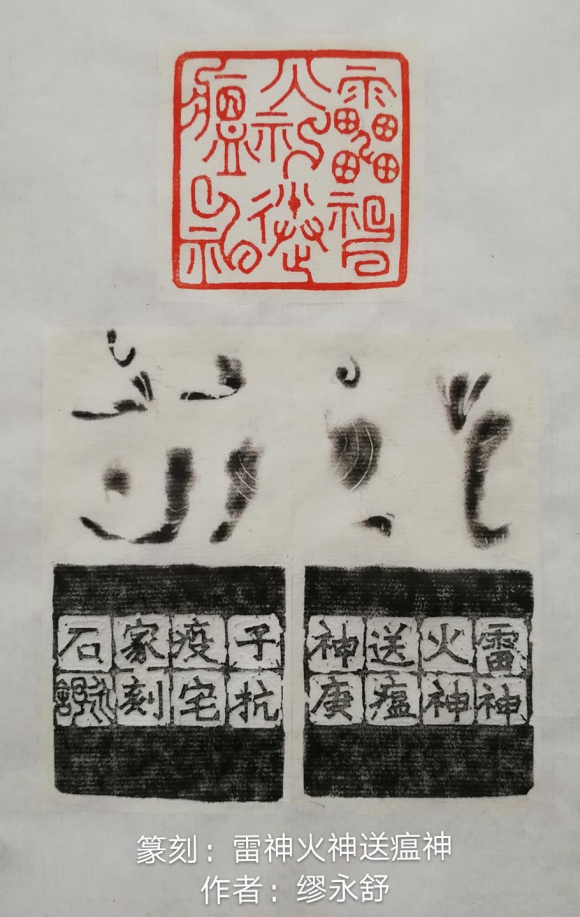 雷神
火神送
瘟神
雷神
火神
送瘟
神庚
子抗
疫宅
家刻
石
篆刻：雷神火神送瘟神
作者：缪永舒